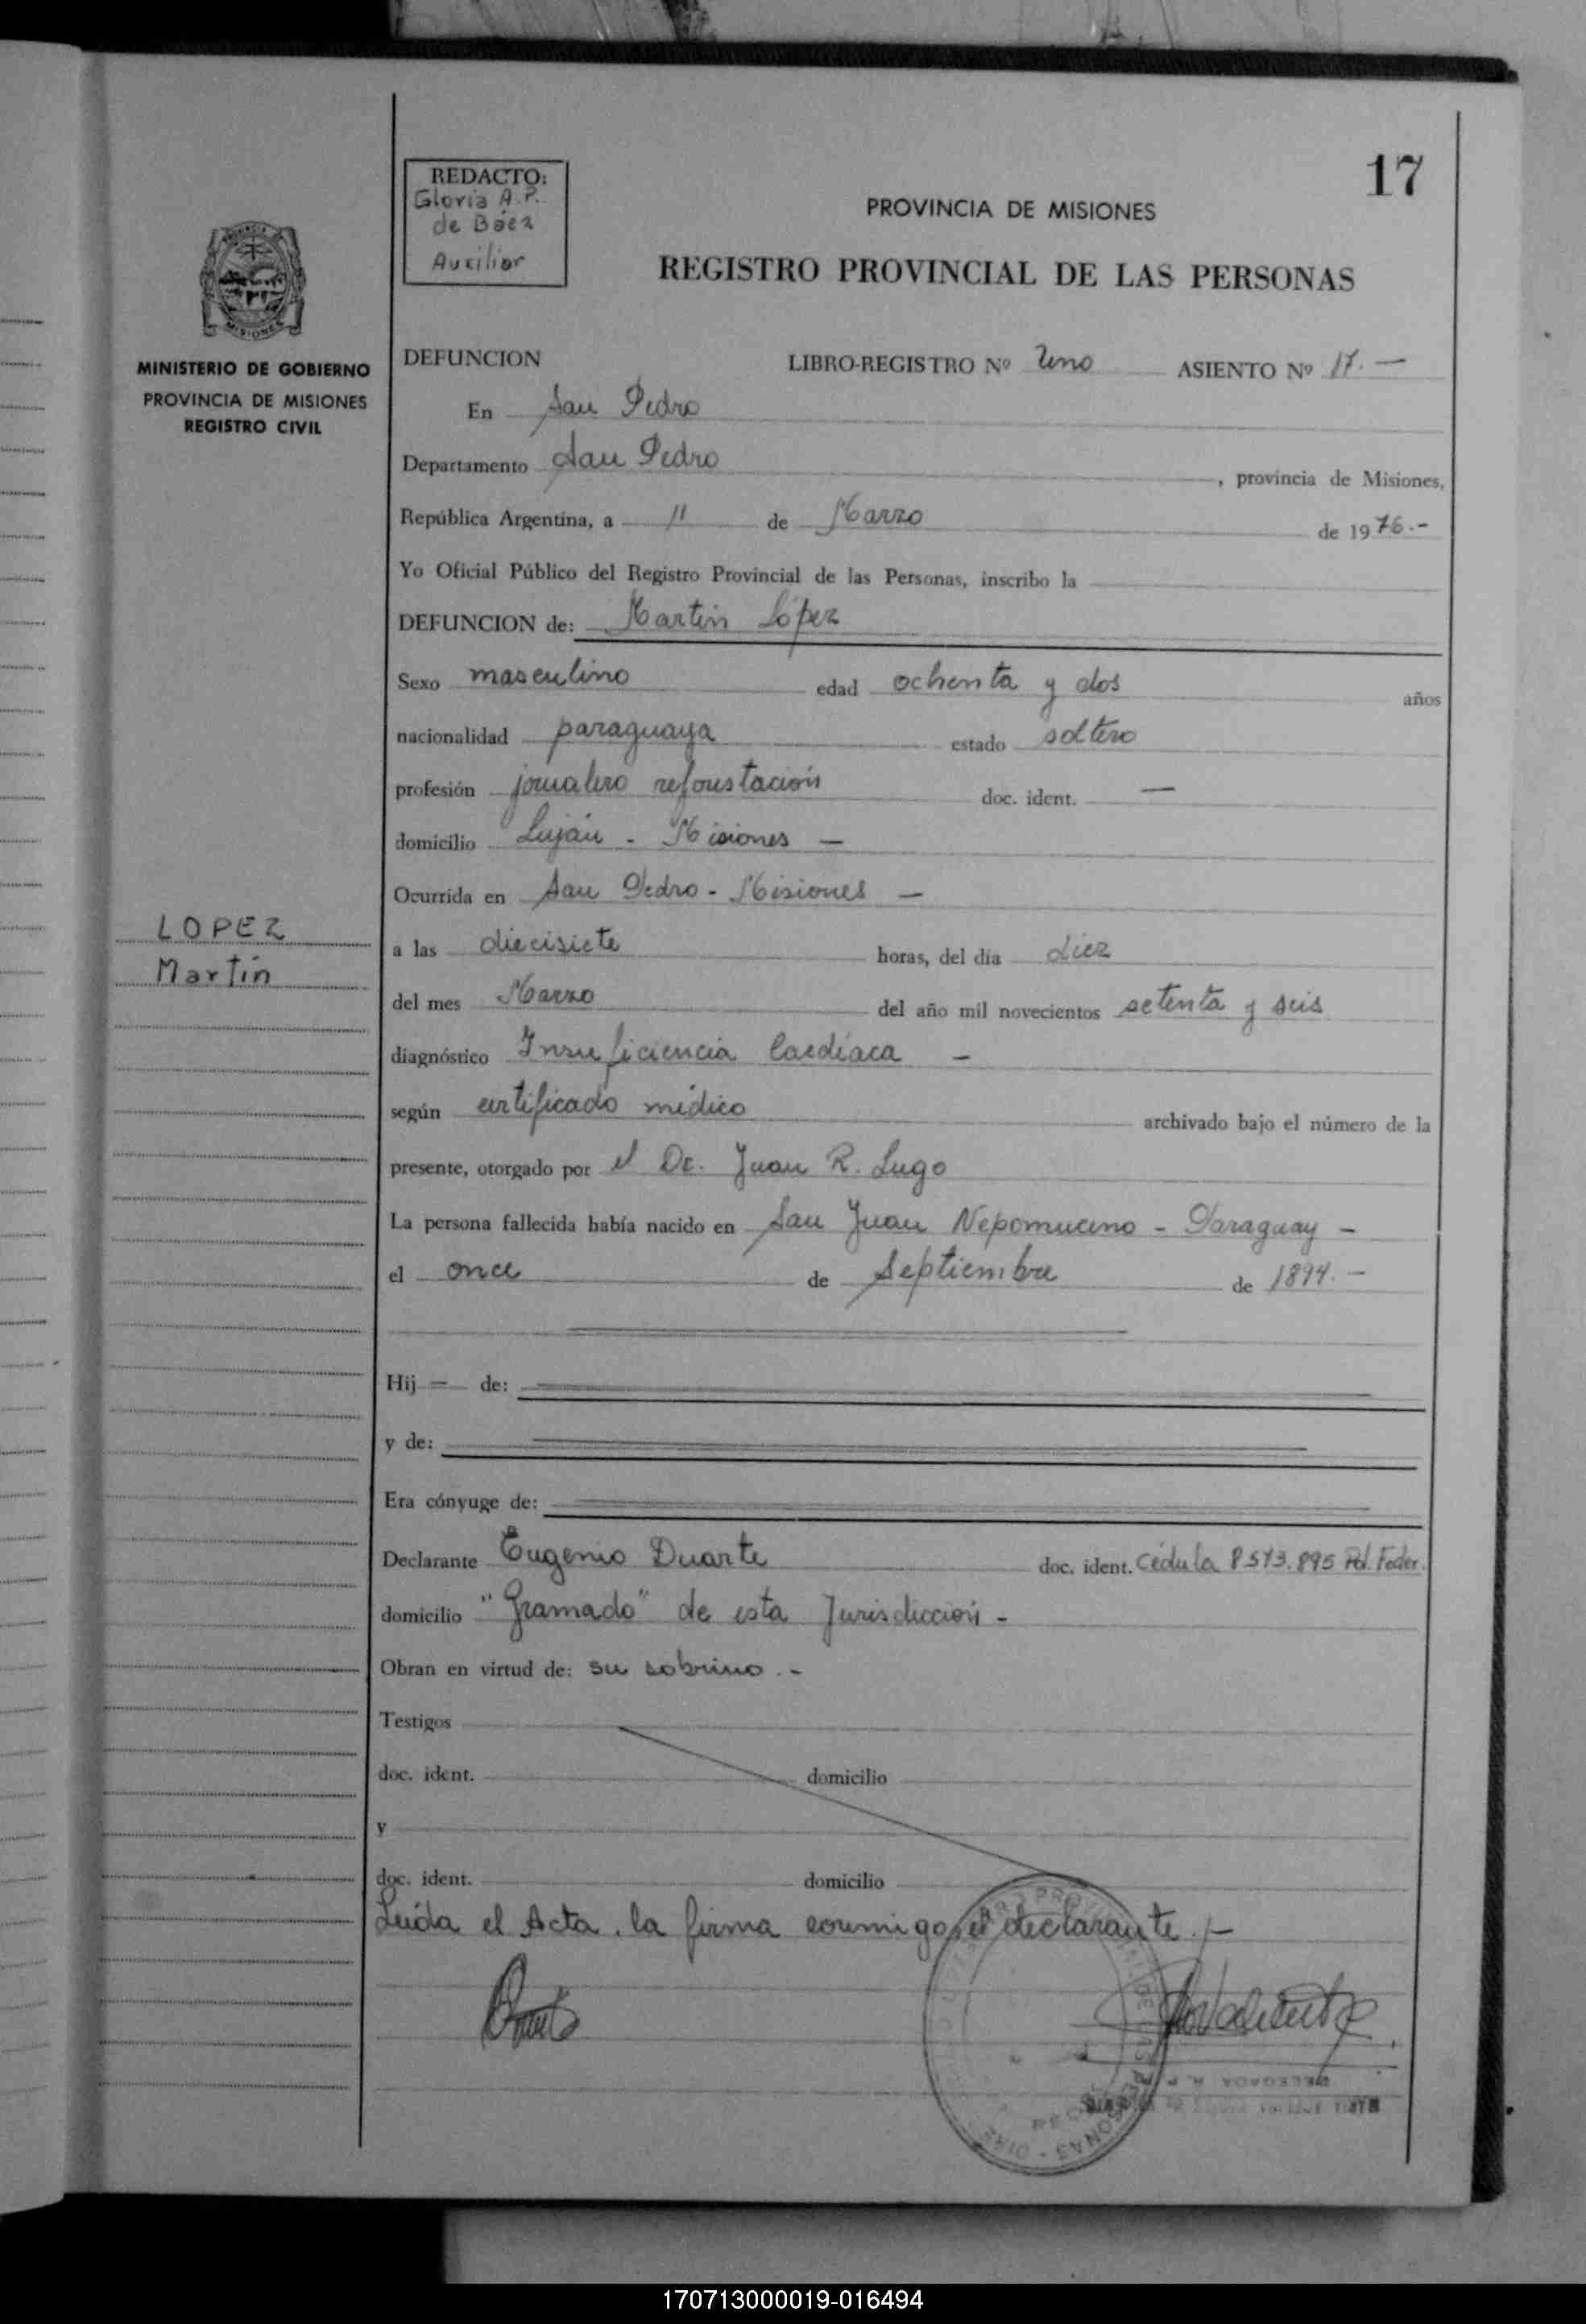 17
REDACTO:
Gloria A. P.
de Báez
Auxiliar
PROVINCIA DE MISIONES
REGISTRO PROVINCIAL DE LAS PERSONAS
MISIONES
MINISTERIO DE GOBIERNO
PROVINCIA DE MISIONES
REGISTRO CIVIL
DEFUNCION LIBRO-REGISTRO Nº Uno ASIENTO Nº 17.—
En San Pedro
Departamento San Pedro, provincia de Misiones,
República Argentina, a 11 de Marzo de 1976.-
Yo Oficial Público del Registro Provincial de las Personas, inscribo la
DEFUNCION de: Martín López
Sexo masculino edad ochenta y dos años
nacionalidad paraguaya estado soltero
profesión jornalero reforestación doc. ident. —
domicilio Luján - Misiones —
Ocurrida en San Pedro - Misiones —
LOPEZ
Martín
a las diecisiete horas, del día diez
del mes Marzo del año mil novecientos setenta y seis
diagnóstico Insuficiencia Cardíaca —
según certificado médico archivado bajo el número de la
presente, otorgado por el Dr. Juan R. Lugo
La persona fallecida había nacido en San Juan Nepomuceno - Paraguay -
el once de Septiembre de 1894.—
Hij — de:
y de:
Era cónyuge de:
Declarante Eugenio Duarte doc. ident. Cédula 8513.895 Pol. Feder.
domicilio "Gramado" de esta Jurisdicción -
Obran en virtud de: su sobrino.-
Testigos
doc. ident. domicilio
y
doc. ident. domicilio
Leída el Acta, la firma conmigo, el declarante.-
DELEGADA R. P.
170713000019-016494